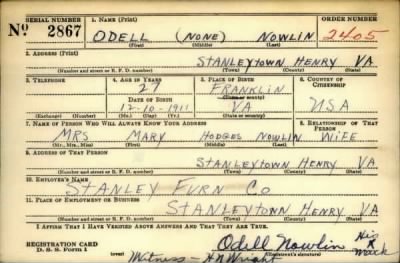 SERIAL NUMBER 1. NAME (Print) ORDER NUMBER
Nº 2867 ODELL (NONE) NOWLIN 2405
(First) (Middle) (Last)
2. ADDRESS (Print)
STANLEYTOWN HENRY VA
(Number and street or R. F. D. number) (Town) (County) (State)
3. TELEPHONE 4. AGE IN YEARS 5. PLACE OF BIRTH 6. COUNTRY OF CITIZENSHIP
27 FRANKLIN
DATE OF BIRTH (Town or county)
12-10-1911 VA USA
(Exchange) (No.) (Mo.) (Day) (Yr.) (State or country)
7. NAME OF PERSON WHO WILL ALWAYS KNOW YOUR ADDRESS 8. RELATIONSHIP OF THAT PERSON
MRS MARY HODGES NOWLIN WIFE
(Mr., Mrs., Miss) (First) (Middle) (Last)
9. ADDRESS OF THAT PERSON
STANLEYTOWN HENRY VA
(Number and street or R. F. D. number) (Town) (County) (State)
10. EMPLOYER'S NAME
STANLEY FURN CO
11. PLACE OF EMPLOYMENT OR BUSINESS
STANLEYTOWN HENRY VA
(Number and street or R. F. D. number) (Town) (County) (State)
I AFFIRM THAT I HAVE VERIFIED ABOVE ANSWERS AND THAT THEY ARE TRUE.
REGISTRATION CARD Odell Nowlin His X Mark
D. S. S. Form 1 (Registrant's signature)
Witness - Wright